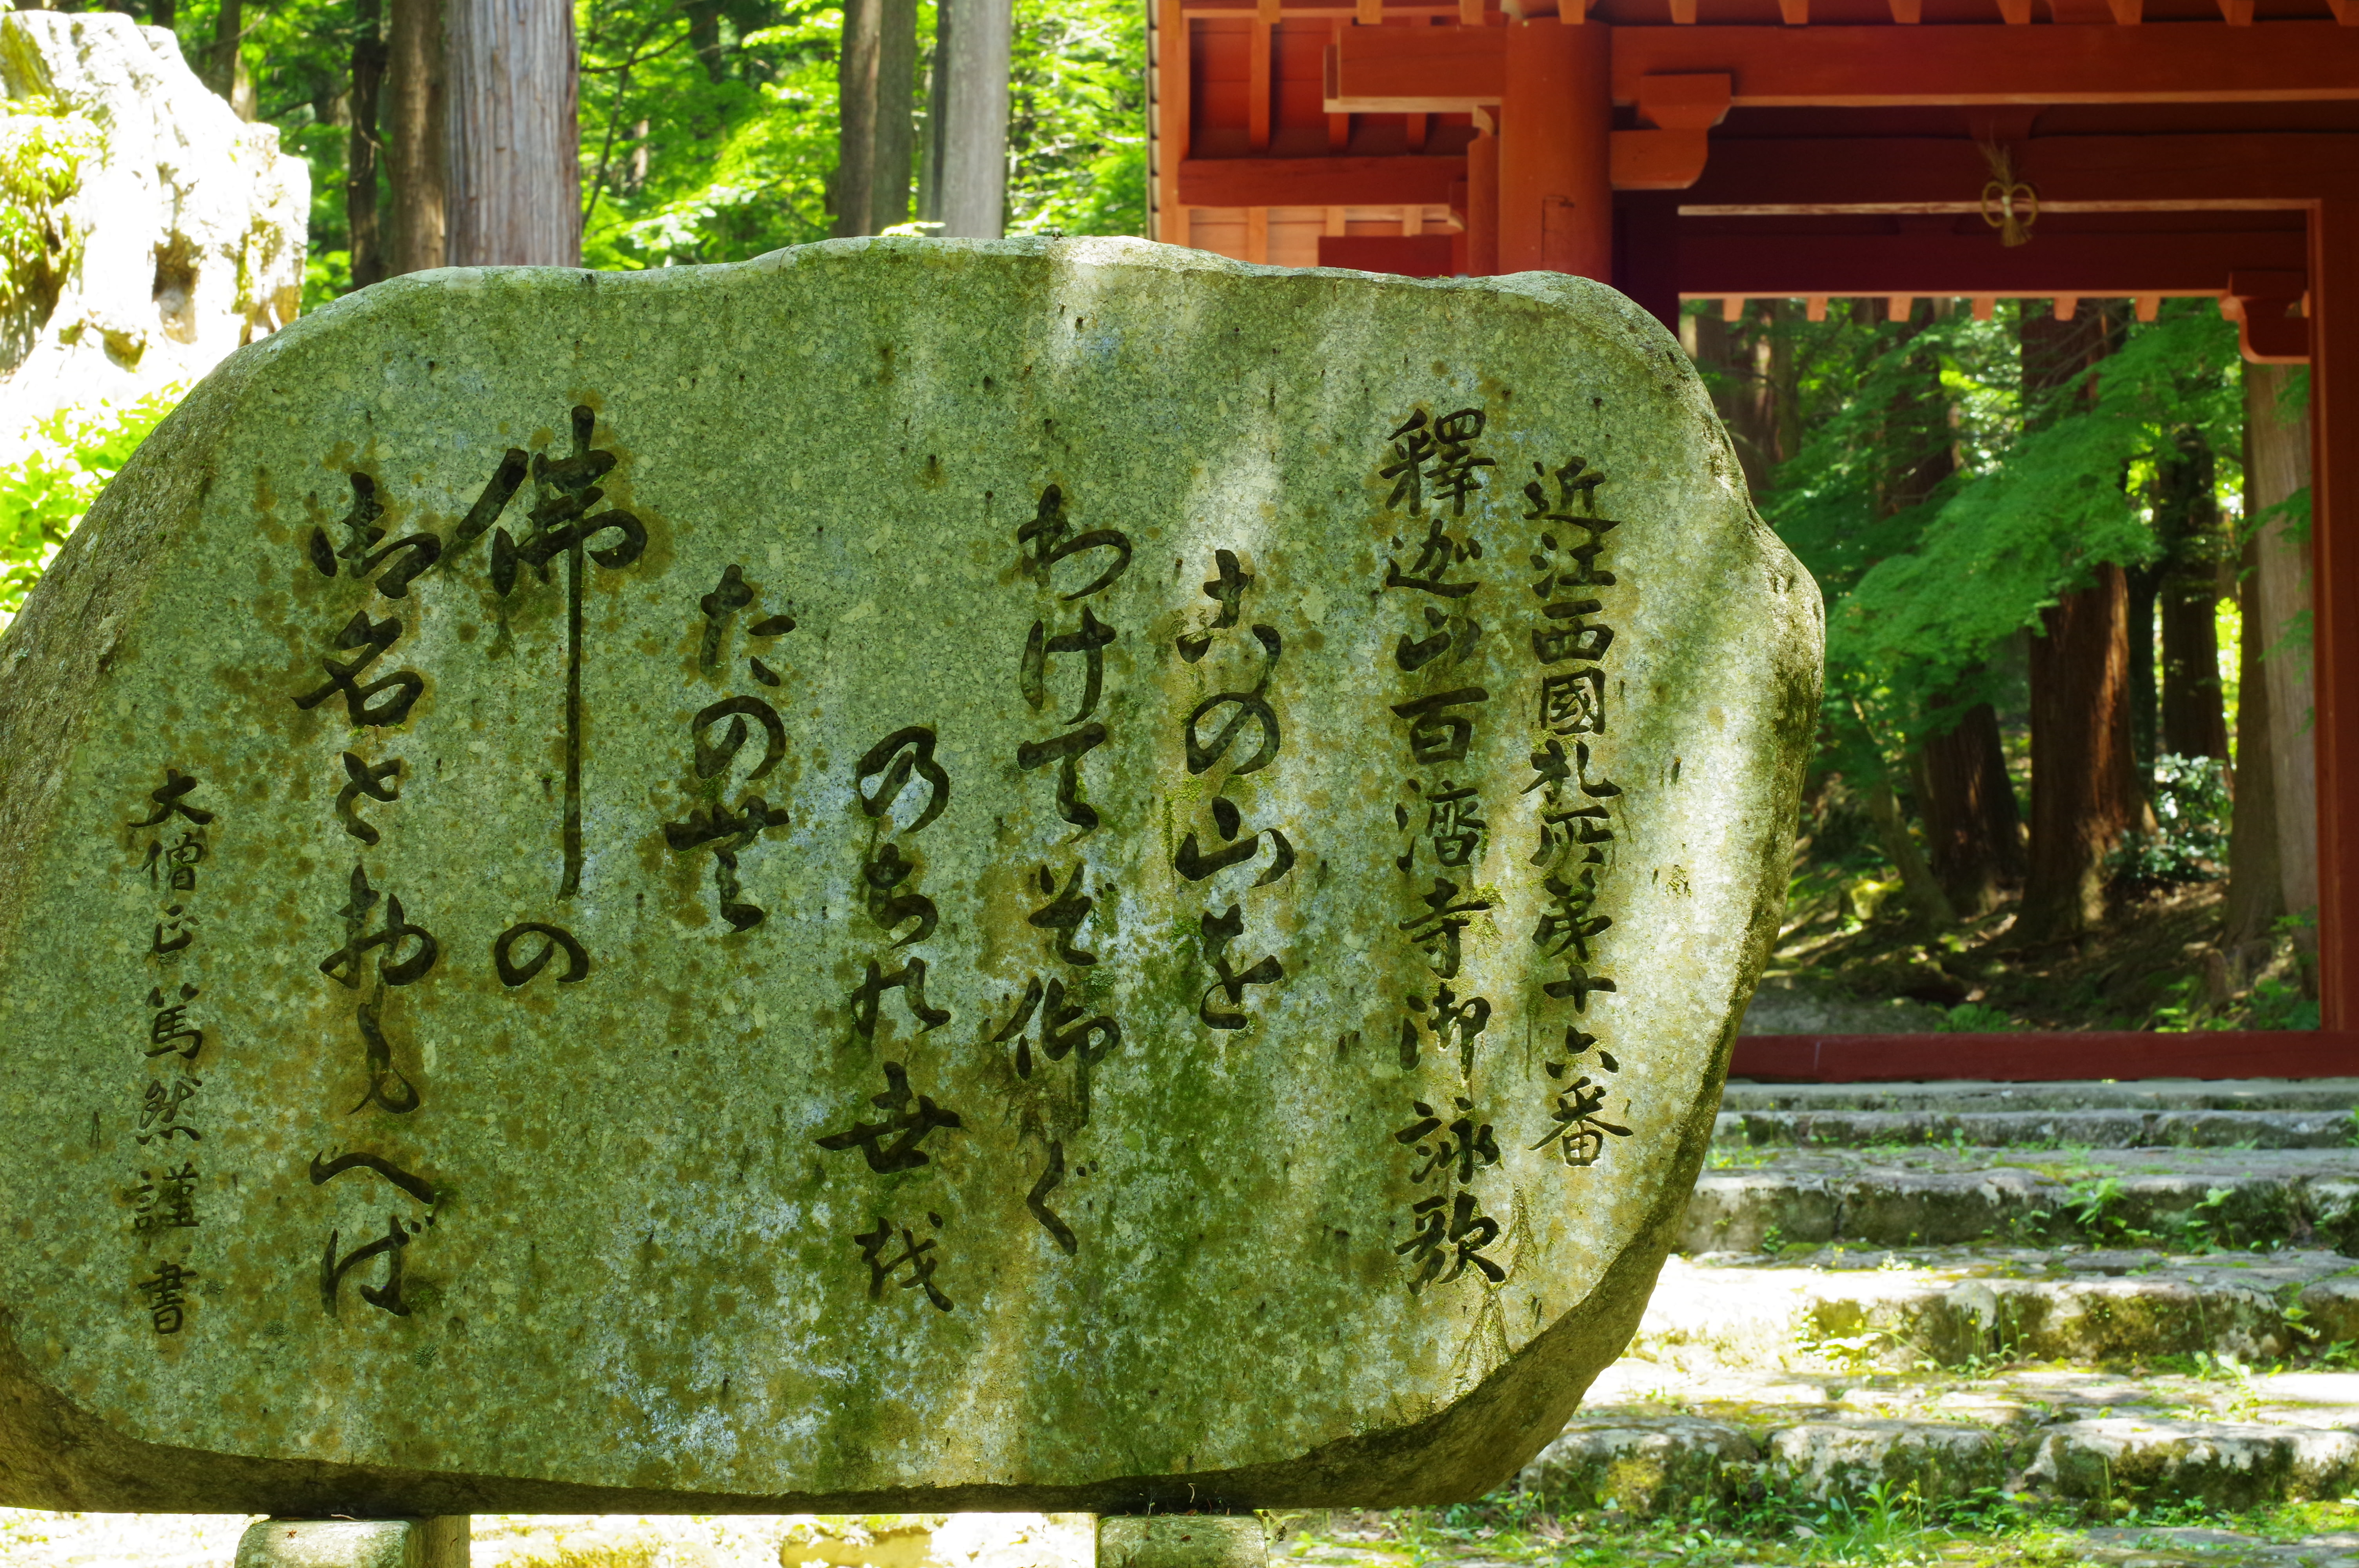 近江西國札所第十六番
釋迦山百濟寺御詠歌
この山を
わけてぞ仰ぐ
のちの世越
たの無
佛の
御名をおもへば
大僧正篤然謹書